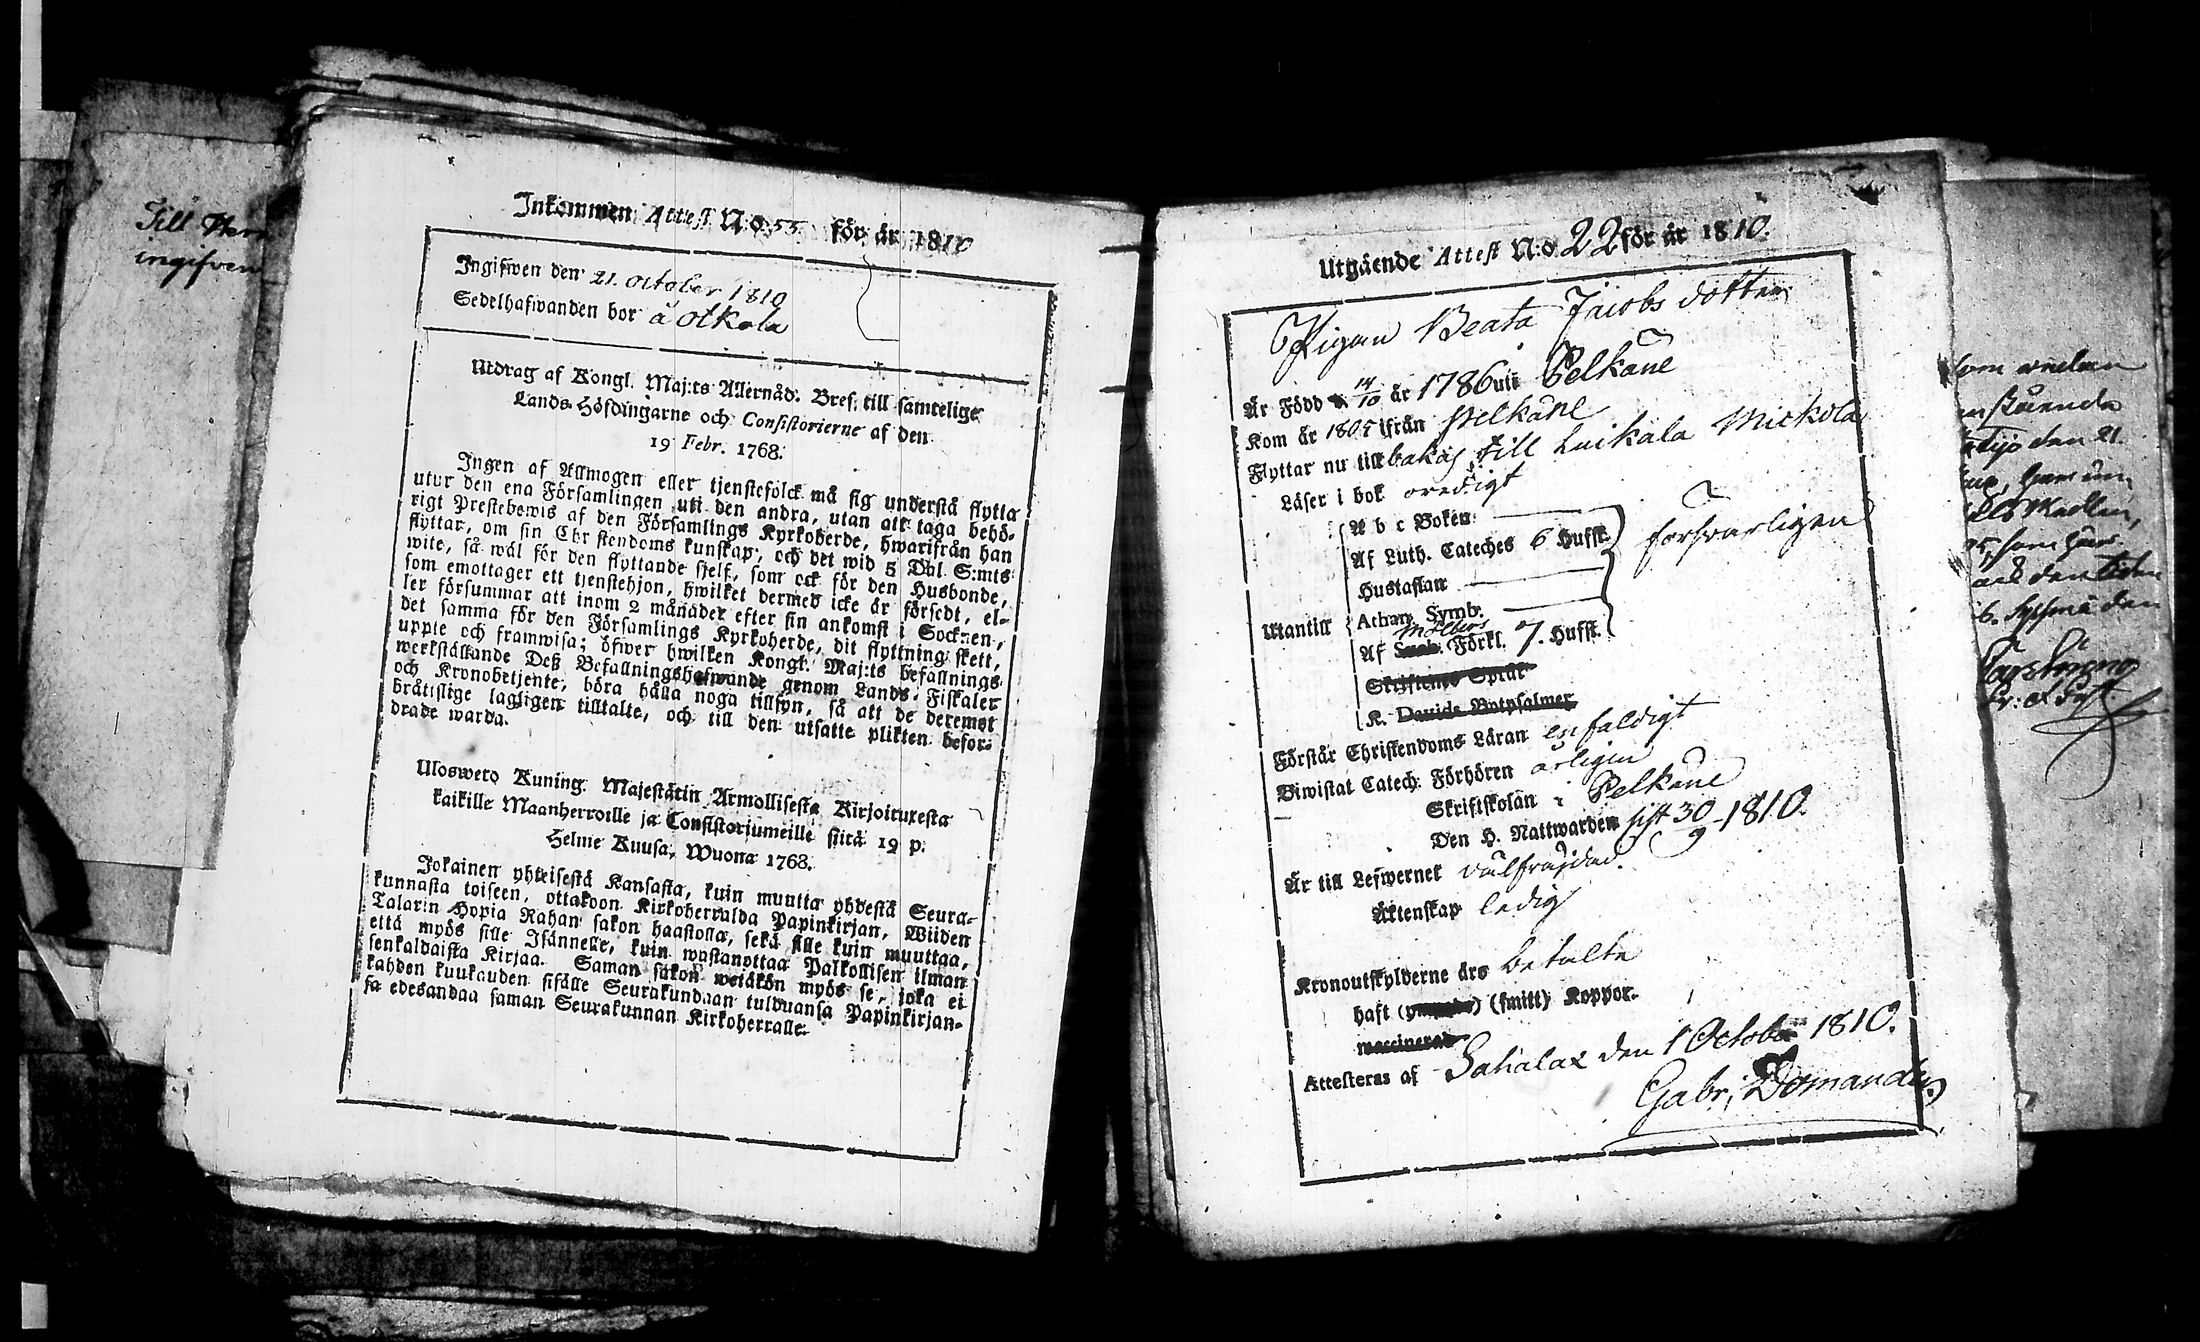 Till Herr
ingifven
Inkommen Attest N:o 55. för år 1810
Ingifwen den 21. October 1810
Sedelhafwanden bor å Otkala
Utdrag af Kongl. Maj:ts Allernåd. Bref, till samtelige
Lands-Höfdingarne och Consistorierne af den
19 Febr. 1768.
Ingen af Allmogen eller tjenstefolck må sig understå flytta
utur den ena Församlingen uti den andra, utan att taga behö-
rigt Prestebewis af den Församlings Kyrkoherde, hwarifrån han
flyttar, om sin Christendoms kunskap, och det wid 5 Dal. S:mts
wite, så wäl för den flyttande sjelf, som ock för den Husbonde,
som emottager ett tjenstehjon, hwilket dermed icke är försedt, el-
ler försummar att inom 2 månader efter sin ankomst i Socknen,
det samma för den Församlings Kyrkoherde, dit flyttning skett,
uppte och framwisa; öfwer hwilken Kongl. Maj:ts befallnings
werkställande Deß Befallningshafwande genom Lands-Fiskaler
och Kronobetjente, böra hålla noga tillsyn, så att de deremot
bråttslige lagligen tilltalte, och till den utsatte plikten befor-
drade warda.
Uloswero Kuning. Majestätin Armollisesta Kirjoituxesta
kaikille Maanherroille ja Consistoriumeille siitä 19 p.
Helme Kuusa, Wuona 1768.
Jokainen yhteisestä Kansasta, kuin muutta yhdestä Seura-
kunnasta toiseen, ottakoon Kirkoherralda Papinkirjan, Wiiden
Talarin Hopia Rahan sakon haastolla, sekä sille kuin muuttaa,
että myös sille Isännelle, kuin wastanottaa Palkollisen ilman
senkaldaista Kirjaa. Saman sakon wetäkön myös se, joka ei
kahden kuukauden sisälle Seurakundaan tulduansa Papinkirjan-
sa edesandaa saman Seurakunnan Kirkoherralle.
Utgående Attest N:o 22 för år 1810.
Pigan Beata Jacobs dotter
Är Född 14/10 år 1786 uti Pelkäne
Kom år 1805 ifrån Pelkäne
Flyttar nu till bakas till Luikala Mickola
Läser i bok oredigt
Utantill
A b c Boken
Af Luth. Cateches 6 Hufst.
Hustaflan
Athan. Symb.
Möllers
Af Förkl. 7. Hufst.
försvarligen
Skriftenes Språk
K. Davids Botpsalmer
Förstår Christendoms Läran enfaldigt
Biwistat Catech. Förhören årligen
Skriftskolan i Pelkäne
Den H. Nattwarden sist 30/9 1810.
Är till Lefwernet välfräjdad.
Äktenskap ledig
Kronoutskylderne äro betalte
haft () (smitt) Koppor.
vaccinerad
Attesteras af Sahalax den 1 October 1810.
Gabr. Domander
den 21.